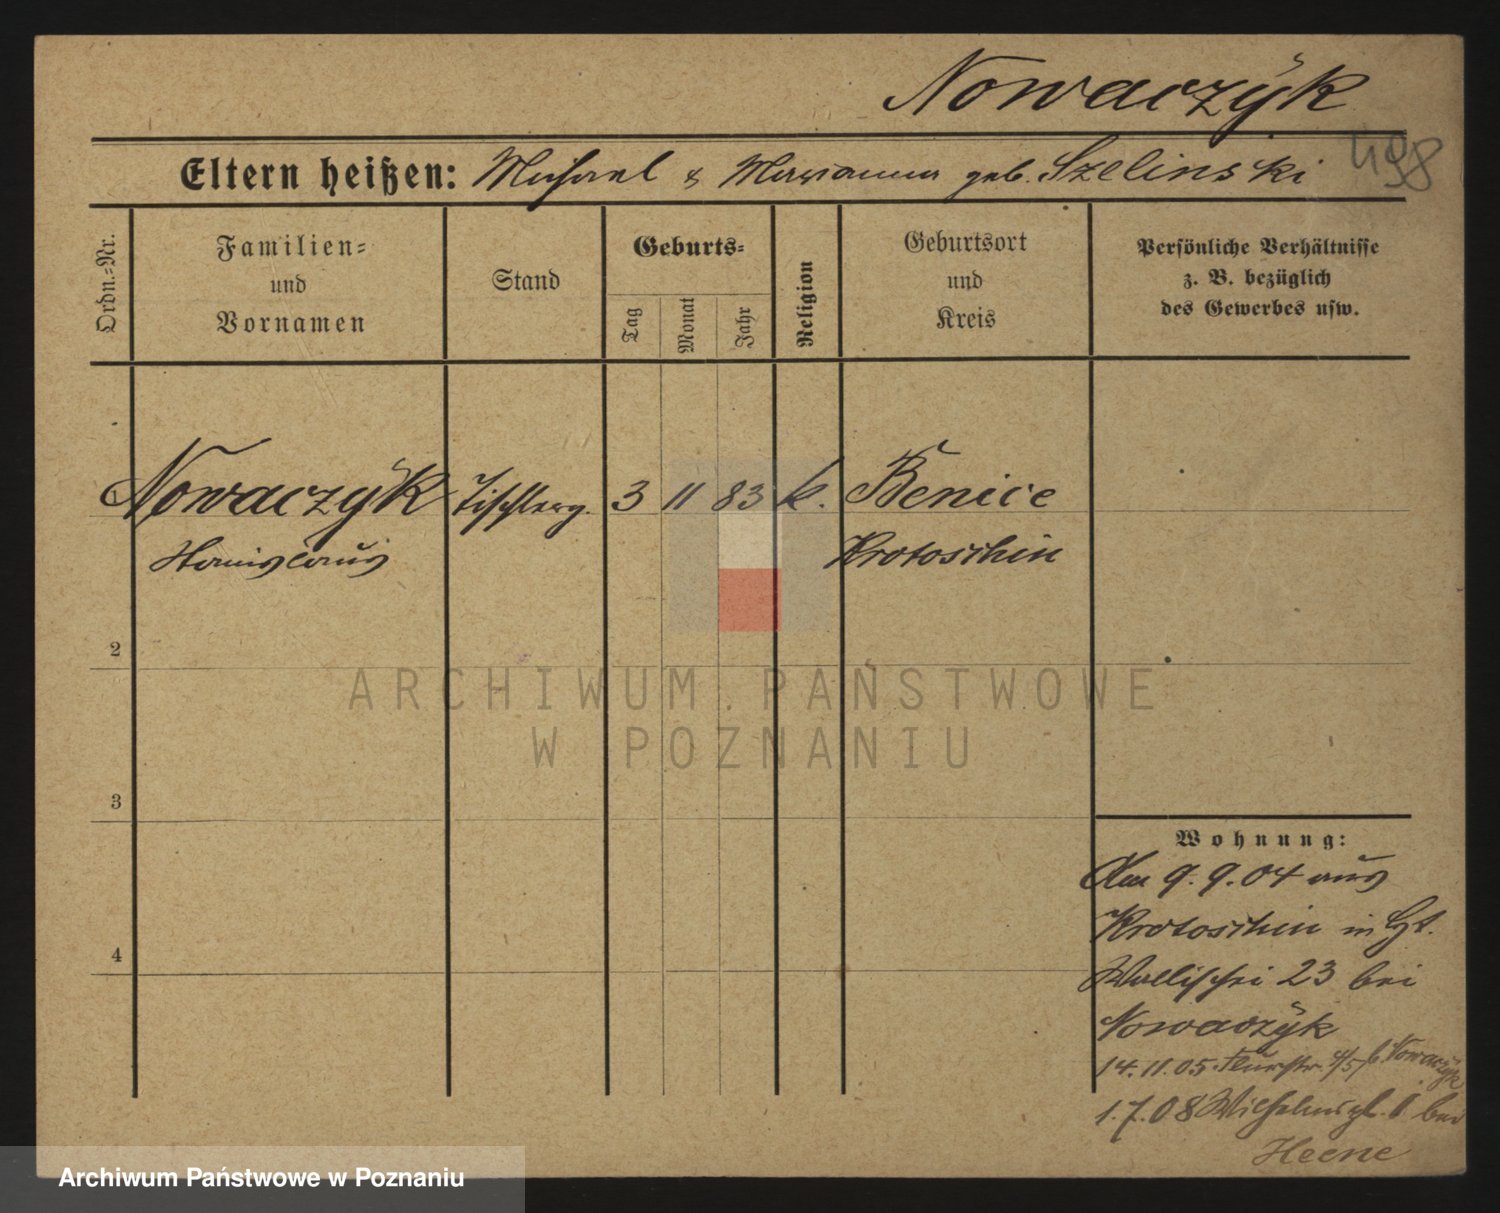 Nowaczÿk
Eltern heißen: Michael & Marianna geb. Szelinski
498
Ordn.-Nr.
Familien-
und
Vornamen
Stand
Geburts-
Tag
Monat
Jahr
Religion
Geburtsort
und
Kreis
Persönliche Verhältnisse
z. B. bezüglich
des Gewerbes usw.
1 Nowaczÿk Tischlerg. 3 11 83 k. Benice
Stanislaus Krotoschin
2
ARCHIWUM PAŃSTWOWE
W POZNANIU
3
Wohnung:
Am 9.9.04 aus
Krotoschin in
4
Wallischei 23 bei
Nowaczÿk
14.11.05 4/5 b Nowaczÿk
1.7.08 Wilhelmspl. 1 bei
Heene
Archiwum Państwowe w Poznaniu